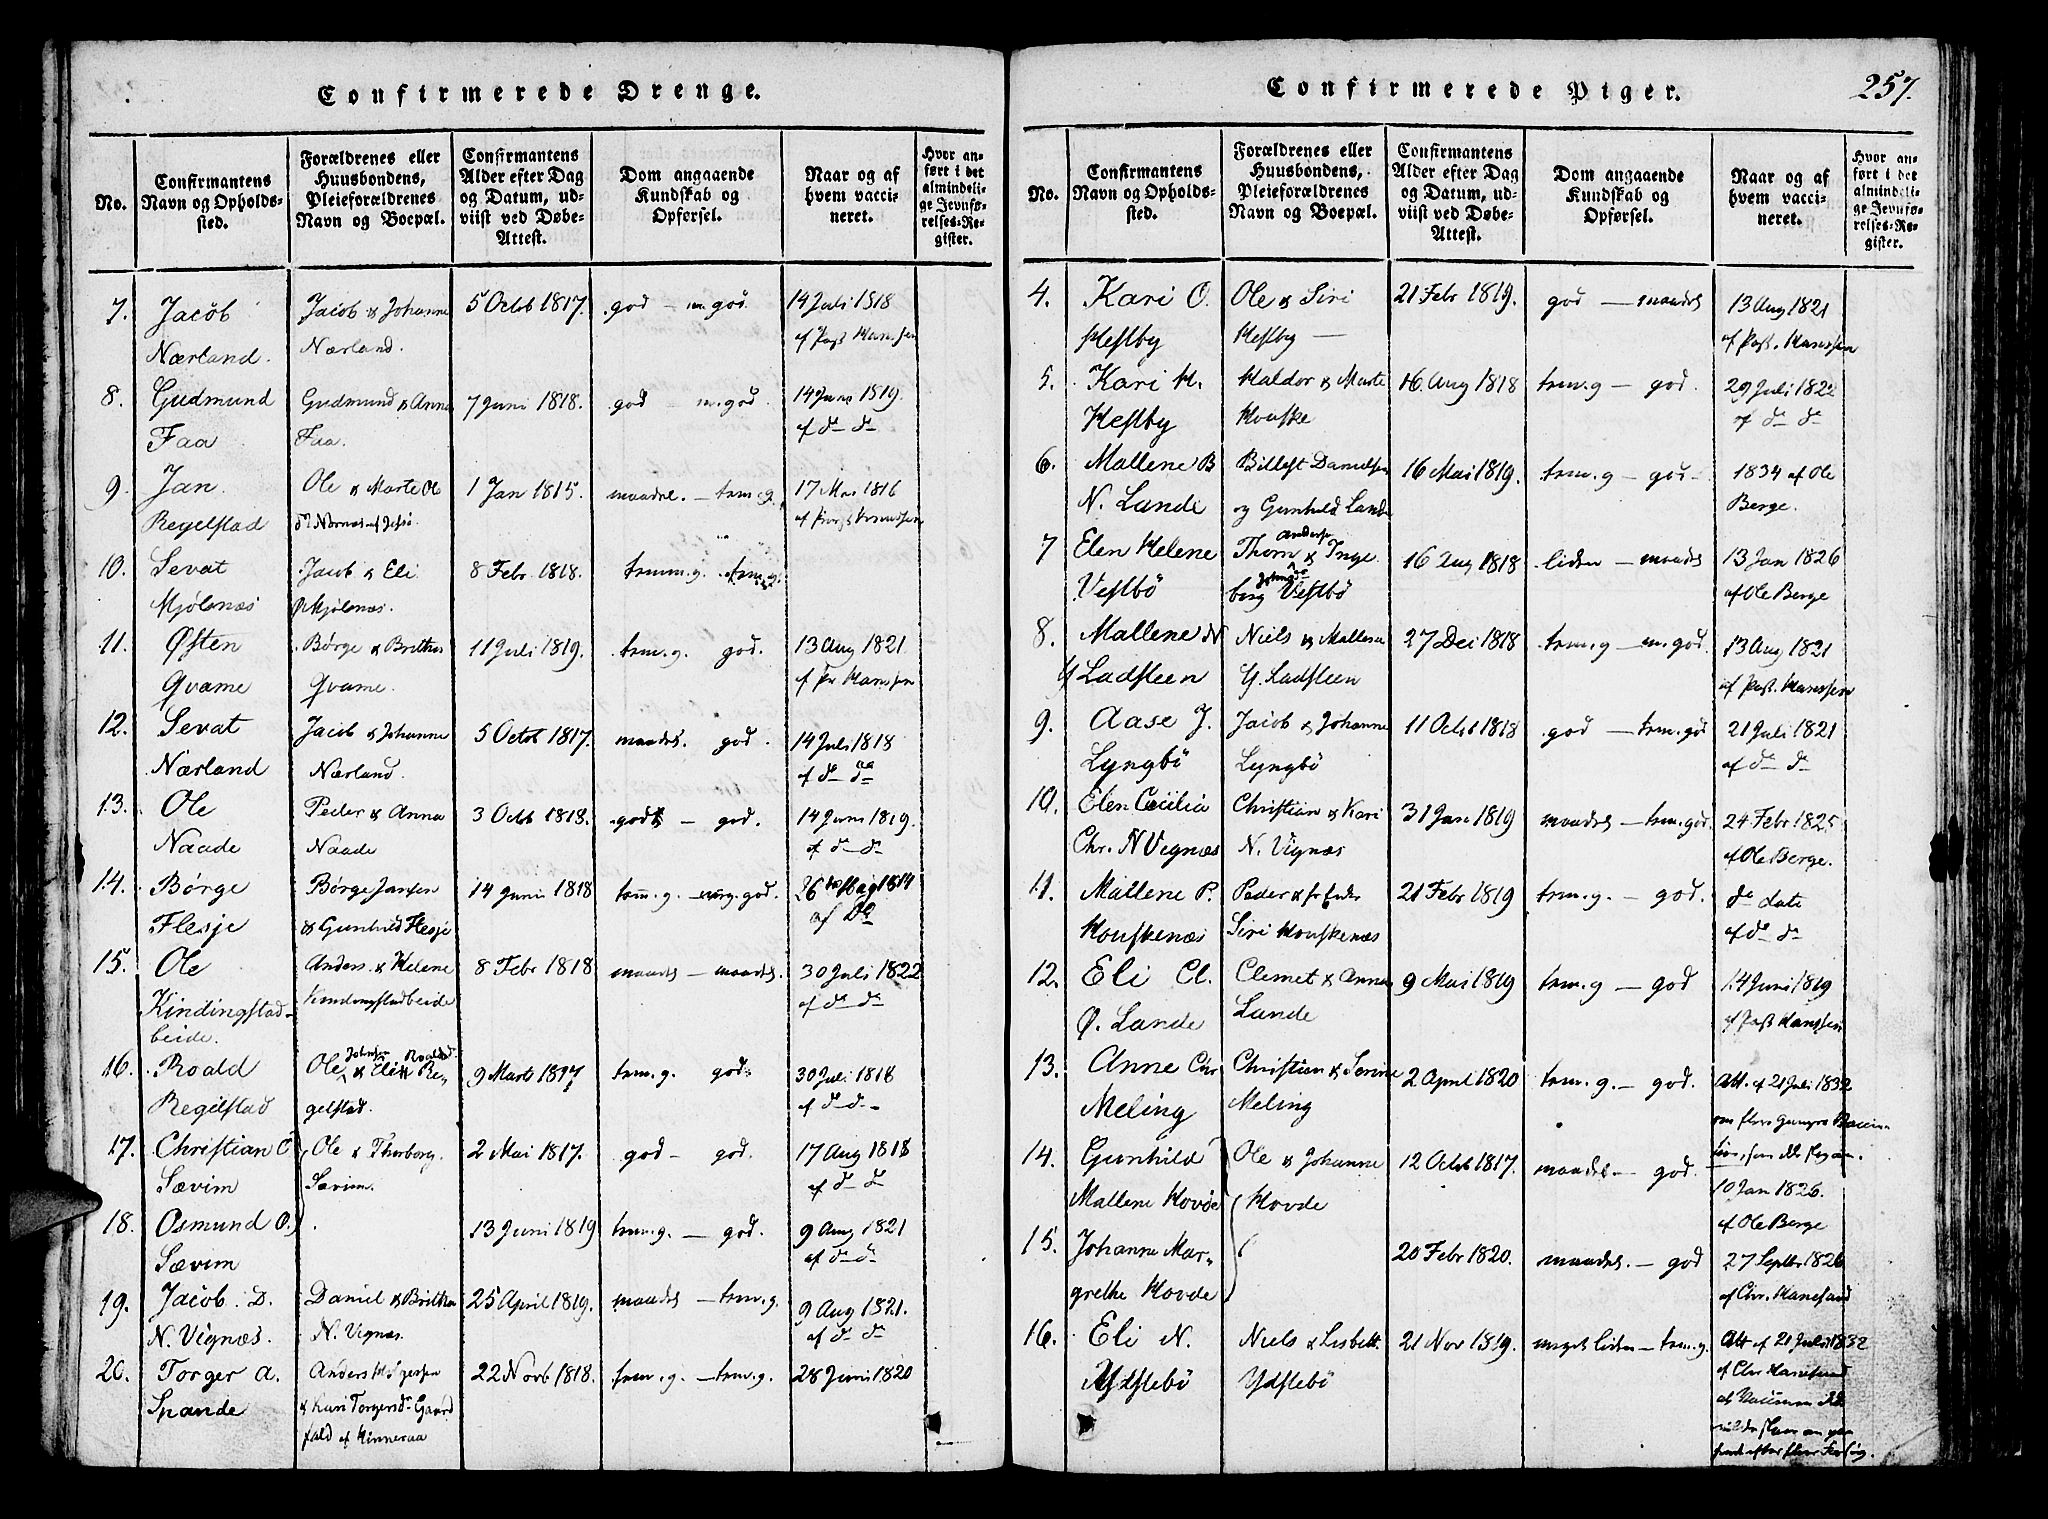 Confirmerede Drenge.
No.
Confirmantens Navn og Opholds-sted.
Forældrenes eller Huusbondens, Pleieforældrenes Navn og Boepæl.
Confirmantens Alder efter Dag og Datum, ud-viist ved Døbe-Attest.
Dom angaaende Kundskab og Opførsel.
Naar og af hvem vacci-neret.
Hvor an-ført i det almindeli-ge Jevnfø-relses-Re-gister.
7. Jacob Jacob & Johanne 5 Octob 1817. god – m. god. 14 Juli 1818
Nærland. Nærland. af Past Hanssen
8. Gudmund Gudmund & Anna 7 Juni 1818. god – m. god. 14 Juni 1819.
Faa Faa. af do do
9. Jan Ole & Marte Ol 1 Jan 1815. maadel. – tem. g. 17 Mai 1816
Regelstad
10. Sevat Jacob & Eli 8 Febr. 1818. temm. g. tem. g.
Mjølsnæs Mjølsnæs.
11. Østen Børge & Brithe 11 Juli 1819. tem. g. god. 13 Aug 1821
Qvame Qvame. af Pr Hanssen
12. Sevat Jacob & Johanne 5 Octob 1817. maadel. god. 14 Juli 1818
Nærland Nærland. af do do
13. Ole Peder & Anna 3 Octb 1818. god – god. 14 Juni 1819.
Naade Naade af do do
14. Børge Børge Jansen 14 Juni 1818 tem. g. god. 26
Flesje & Gunhild Flesje af Do
15. Ole Anders & Helene 8 Febr 1818 maadel – maadel. 30 Juli 1822
Kindingstad- Kindingstadbeide af do do
beide.
16. Roald Ole Johns. & Eli Roaldsd. Re- 9 Marts 1817 tem. g. god. 30 Juli 1818
Regelstad gelstad. af do do
17. Christian O Ole & Thorborg 2 Mai 1817. god – god. 17 Aug 1818
Sævim Sævim. af do do
18. Osmund O. 13 Juni 1819 tem. g. – god. 9 Aug 1821
Sævim af do do
19. Jacob D. Daniel & Britha 25 April 1819. maadel – tem. g. 9 Aug 1821.
N. Vignæs. N. Vignæs. af do do
20. Torger A. Anders 22 Novb 1818. tem. g. – tem. g. 28 Juni 1820
Spande & Kari Torgersdr Gaard
fald af Hinneraa
Confirmerede Piger.
257.
No.
Confirmantens Navn og Opholds-sted.
Forældrenes eller Huusbondens, Pleieforældrenes Navn og Boepæl.
Confirmantens Alder efter Dag og Datum, ud-viist ved Døbe-Attest.
Dom angaaende Kundskab og Opførsel.
Naar og af hvem vacci-neret.
Hvor an-ført i det almindeli-ge Jevnfø-relses-Re-gister.
4. Kari O. Ole & Siri 21 Febr 1819. god – maadel 13 Aug 1821
Hestby Hestby – af Past. Hanssen
5. Kari H. Haldor & Marte 16 Aug 1818 tem. g – god. 29 Juli 1822
Hestby Houske af do do
6. Mallene B Billest Danielsen 16 Mai 1819. tem. g – god – 1834 af Ole
N. Lande og Gunhild Lande Berge.
7 Elen Helene Thom Anders. & Inge 16 Aug 1818 liden – maadel 13 Jan 1826
Vestbö berg Vestbö af Ole Berge
8. Mallene N Niels & Mallena 27 Dec 1818 tem. g – m. god. 13 Aug 1821
Y Ladsteen Y. Ladsteen af Past. Hanssen
9. Aase J. Jacob & Johanne 11 Octb 1818 god – tem. god 21 Juli 1821
Lyngbö Lyngbö af do do
10. Elen Cecilia Christian & Kari 31 Jan 1819 maadel – tem. god. 24 Febr 1825
Chr. N Vignæs N. Vignæs af Ole Berge.
11. Mallene P. Peder & 21 Febr 1819 tem. g. – god. do dato
Houskenæs Siri Houskenæs af do do
12. Eli Cl. Clemet & Anna 9 Mai 1819 tem. g – god 14 Juni 1819
Ø. Lande Lande af Past Hanssen
13. Anne Chr Christian & Serine 2 April 1820 tem. g. – god. Att. af 21 Juli 1832
Meling Meling om flere Ganges Vaccin-
14. Gunhild Ole & Johanne 12 Octob 1817. maadel – god. 10 Jan 1826.
Mallene Hovde Hovde af Ole Berge
15. Johanne Mar- 20 Febr 1820. maadel. – god 27 Septbr 1826
grethe Hovde af Chr. Hanesand
16. Eli N. Niels & Lisbett 21 Nov 1819. meget liden – tem. g. Att af 21 Juli 1832
Ydstebö Ydstebö af Chr Hanesand